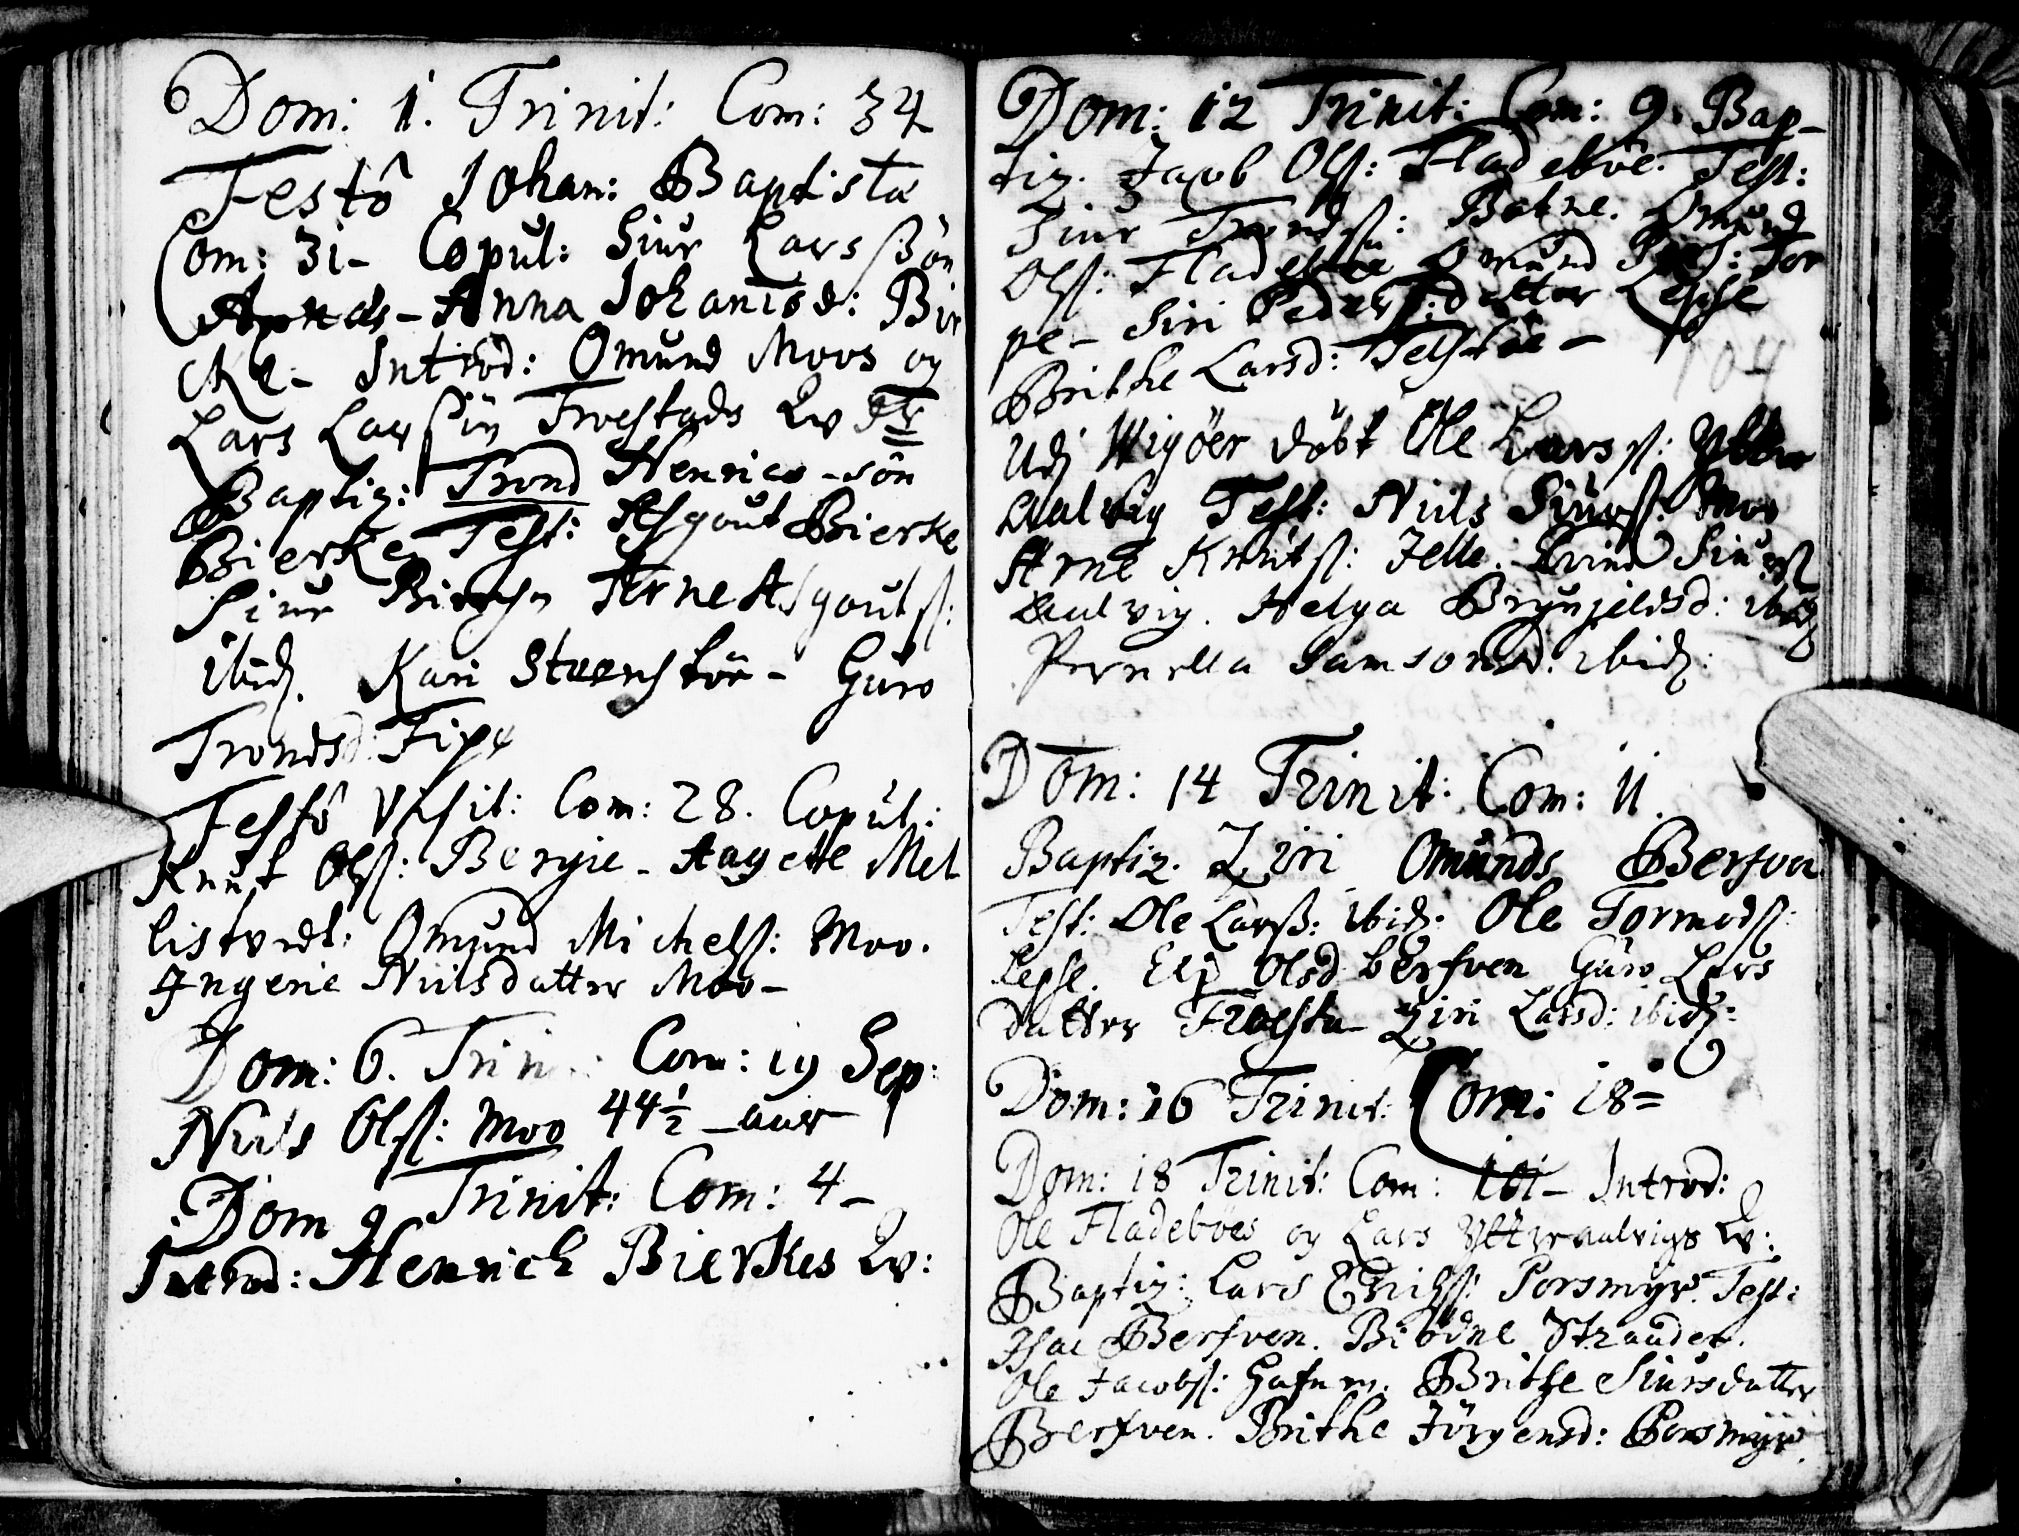 Dom: 1. Trinit: Com: 34
Festô Johan: Baptistæ
Com: 31- Copul: Siur Larssøn
Anna Johanisd: Bir
cke- Introd: Omund Moos og
Lars Larssøn Troestads Qv
Baptiz: Trond Henrics-søn
Bierke, Test: Asgout Bierke
Siur Arne Asgoutss:
ibid. Kari Steenstøe- Guro
Trondsd: Tipe
Festô Visit: Com: 28. Copul:
Knut Olss: Bergie- Aagette Mel
listvedt. Omund Michelss: Moo.
Ingerie Niilsdatter Moo-
Dom: 6. Trin Com: 19 Sep:
Niils Olss: Moo 44½-aar
Dom 9 Trinit: Com: 4-
Introd: Henrich Bierkes Qv:
Dom: 12 Trinit: Com: 9. Bap-
tiz. Jacob Olss: Fladebøe. Test:
Siur Trondss: Omund
Olss: Fladebøe Omund Tor
pe- Siri Peders datter Lepse
Brithe Larsd:
Udj Wigøer døbt Ole Larss: Yttre
aalvig Test: Niils Siurss: Moo
Arne Knutss: Eivind Siurss
aalvig. Helga Brynjeldsd: ibid
Pernella Samsonsd: ibid:
Dom: 14 Trinit: Com: 11
Baptiz. Ziri Omunds Berfven
Test: Ole Larss: ibid: Ole Tormods:
Lepse. Eli Olsd berfven Guro Lars
datter Froesta Ziri Larsd: ibid:
Dom: 16 Trinit: Com: 18=
Dom: 18 Trinit: Com: 101- Introd:
Ole Fladebøes og Lars Yttreaalvigs Qv:
Baptiz: Lars Erichss: Porsmyr. Test:
Isac Berfven. Biødne Straaden.
Ole Jacobss: Hafnen. Brithe Siursdatter
Berfven. Brithe Jørgensd: Porsmyr.